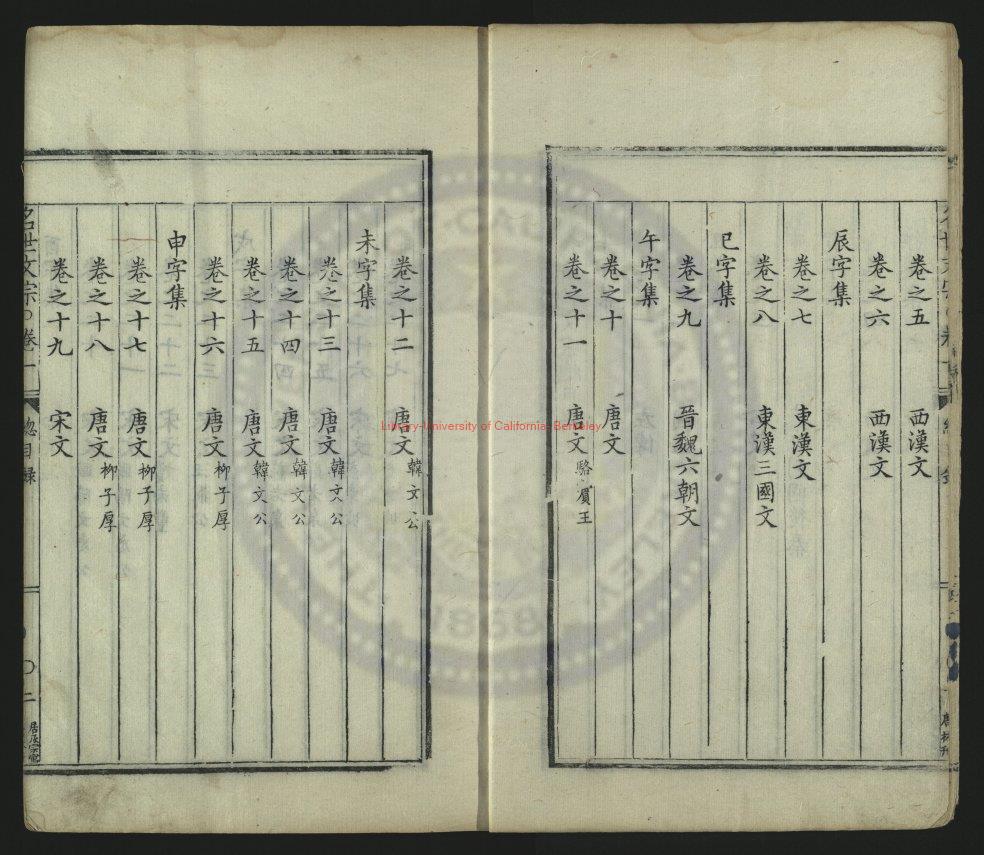 卷之五 西漢文
卷之六 西漢文
辰字集
卷之七 東漢文
卷之八 東漢三國文
巳字集
卷之九 晉魏六朝文
午字集
卷之十 唐文
卷之十一 唐文 駱賓王
卷之十二 唐文 韓文公
未字集
卷之十三 唐文 韓文公
卷之十四 唐文 韓文公
卷之十五 唐文 韓文公
卷之十六 唐文 柳子厚
申字集
卷之十七 唐文 柳子厚
卷之十八 唐文 柳子厚
卷之十九 宋文
名世文宗 卷一 總目録
Library-University of California, Berkeley